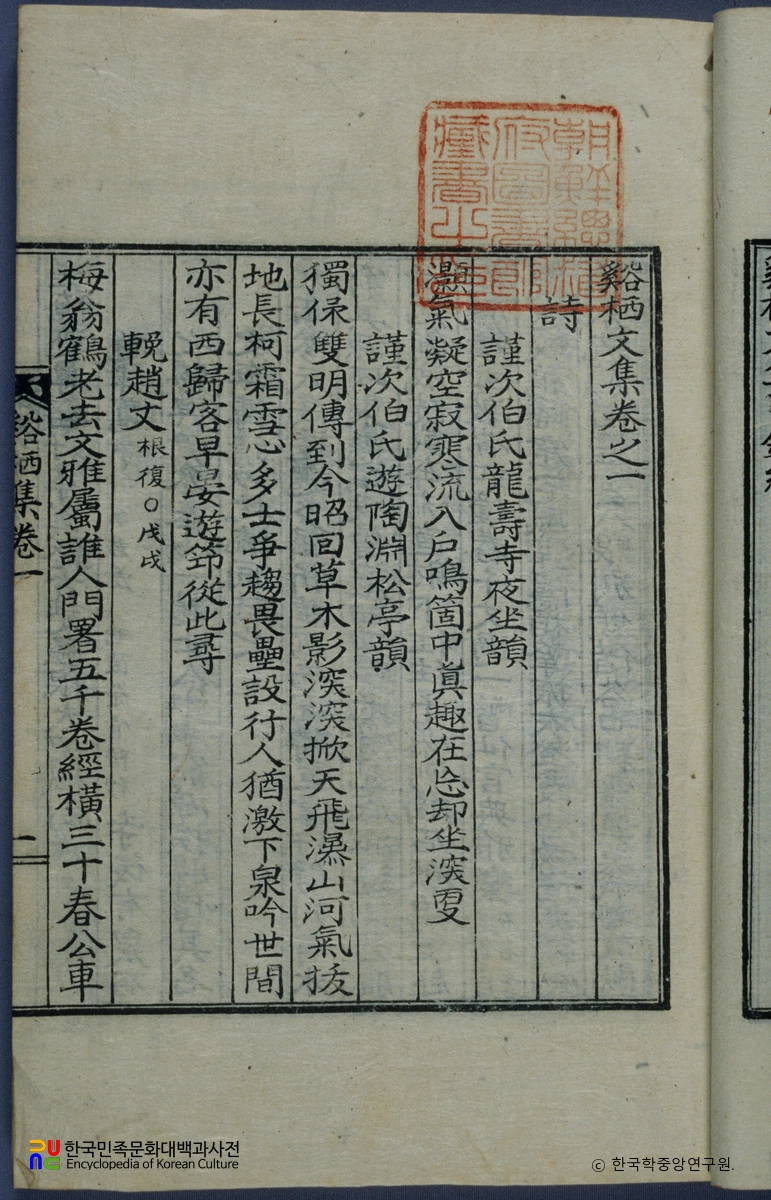 朝鮮總督
府圖書館
藏書之印
谿栖文集卷之一
詩
謹次伯氏龍壽寺夜坐韻
灝氣凝空寂寞流入戶鳴箇中眞趣在忘却坐深更
謹次伯氏遊陶淵松亭韻
獨保雙明傳到今昭回草木影深深掀天飛瀑山河氣拔
地長柯霜雪心多士爭趨畏壘設行人猶激下泉吟世間
亦有西歸客早晏遊笻從此尋
輓趙文 根復○戊戌
梅翁鶴老去文雅屬誰人門署五千卷經橫三十春公車
谿栖集卷一
一
한국민족문화대백과사전
Encyclopedia of Korean Culture
© 한국학중앙연구원.